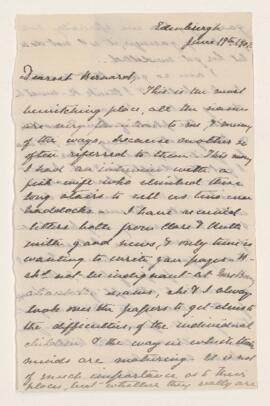 Edinburgh
June 19th
Dearest Bernard,
This is the most
bewitching place, all the names
are very familiar to me, & many
of the ways, because mother so
often referred to them. This morning
I had an interview with a
fish-wife who climbed three
long stairs to sell us two
haddocks. I have received
letters both from Clare & Ruth
with good news, & only time is
wanting to write you pages.
not be indignant at
status, she & I always
took over the papers to get
the difficulties, of the individual
children & the way in which their
minds are maturing. It is not
of much importance as to their
place, but whether they really are